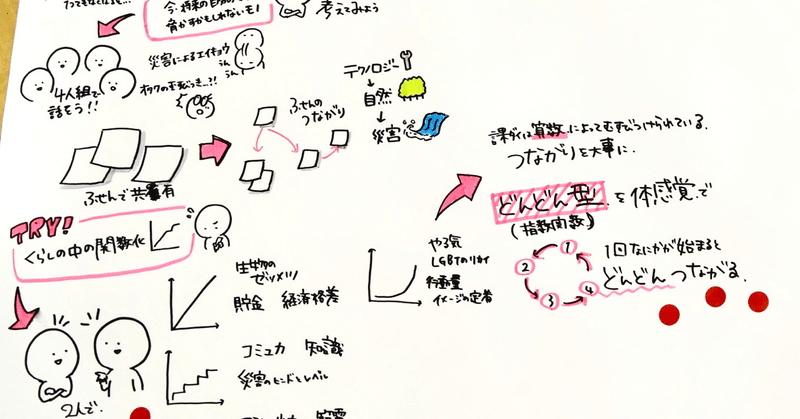 今・将来の自分の
脅かすかもしれないモノ
考えてみよう
災害によるエイキョウ
うん
うん
4人組で
話そう!!
テクノロジー
自然
災害
ふせんの
つながり
ふせんで共有
課ダイは算数によってむすびつけられている。
つながりを大事に。
どんどん型を体感覚で
(指数関数)
1回なにかが始まると
どんどんつながる。
1
2
3
4
TRY!
くらしの中の関数化
生物の
ゼツメツ
貯金 経済格差
やる気
LGBTのリカイ
イメージの定着
コミュ力 知識
災害のヒンドとレベル
2人で。